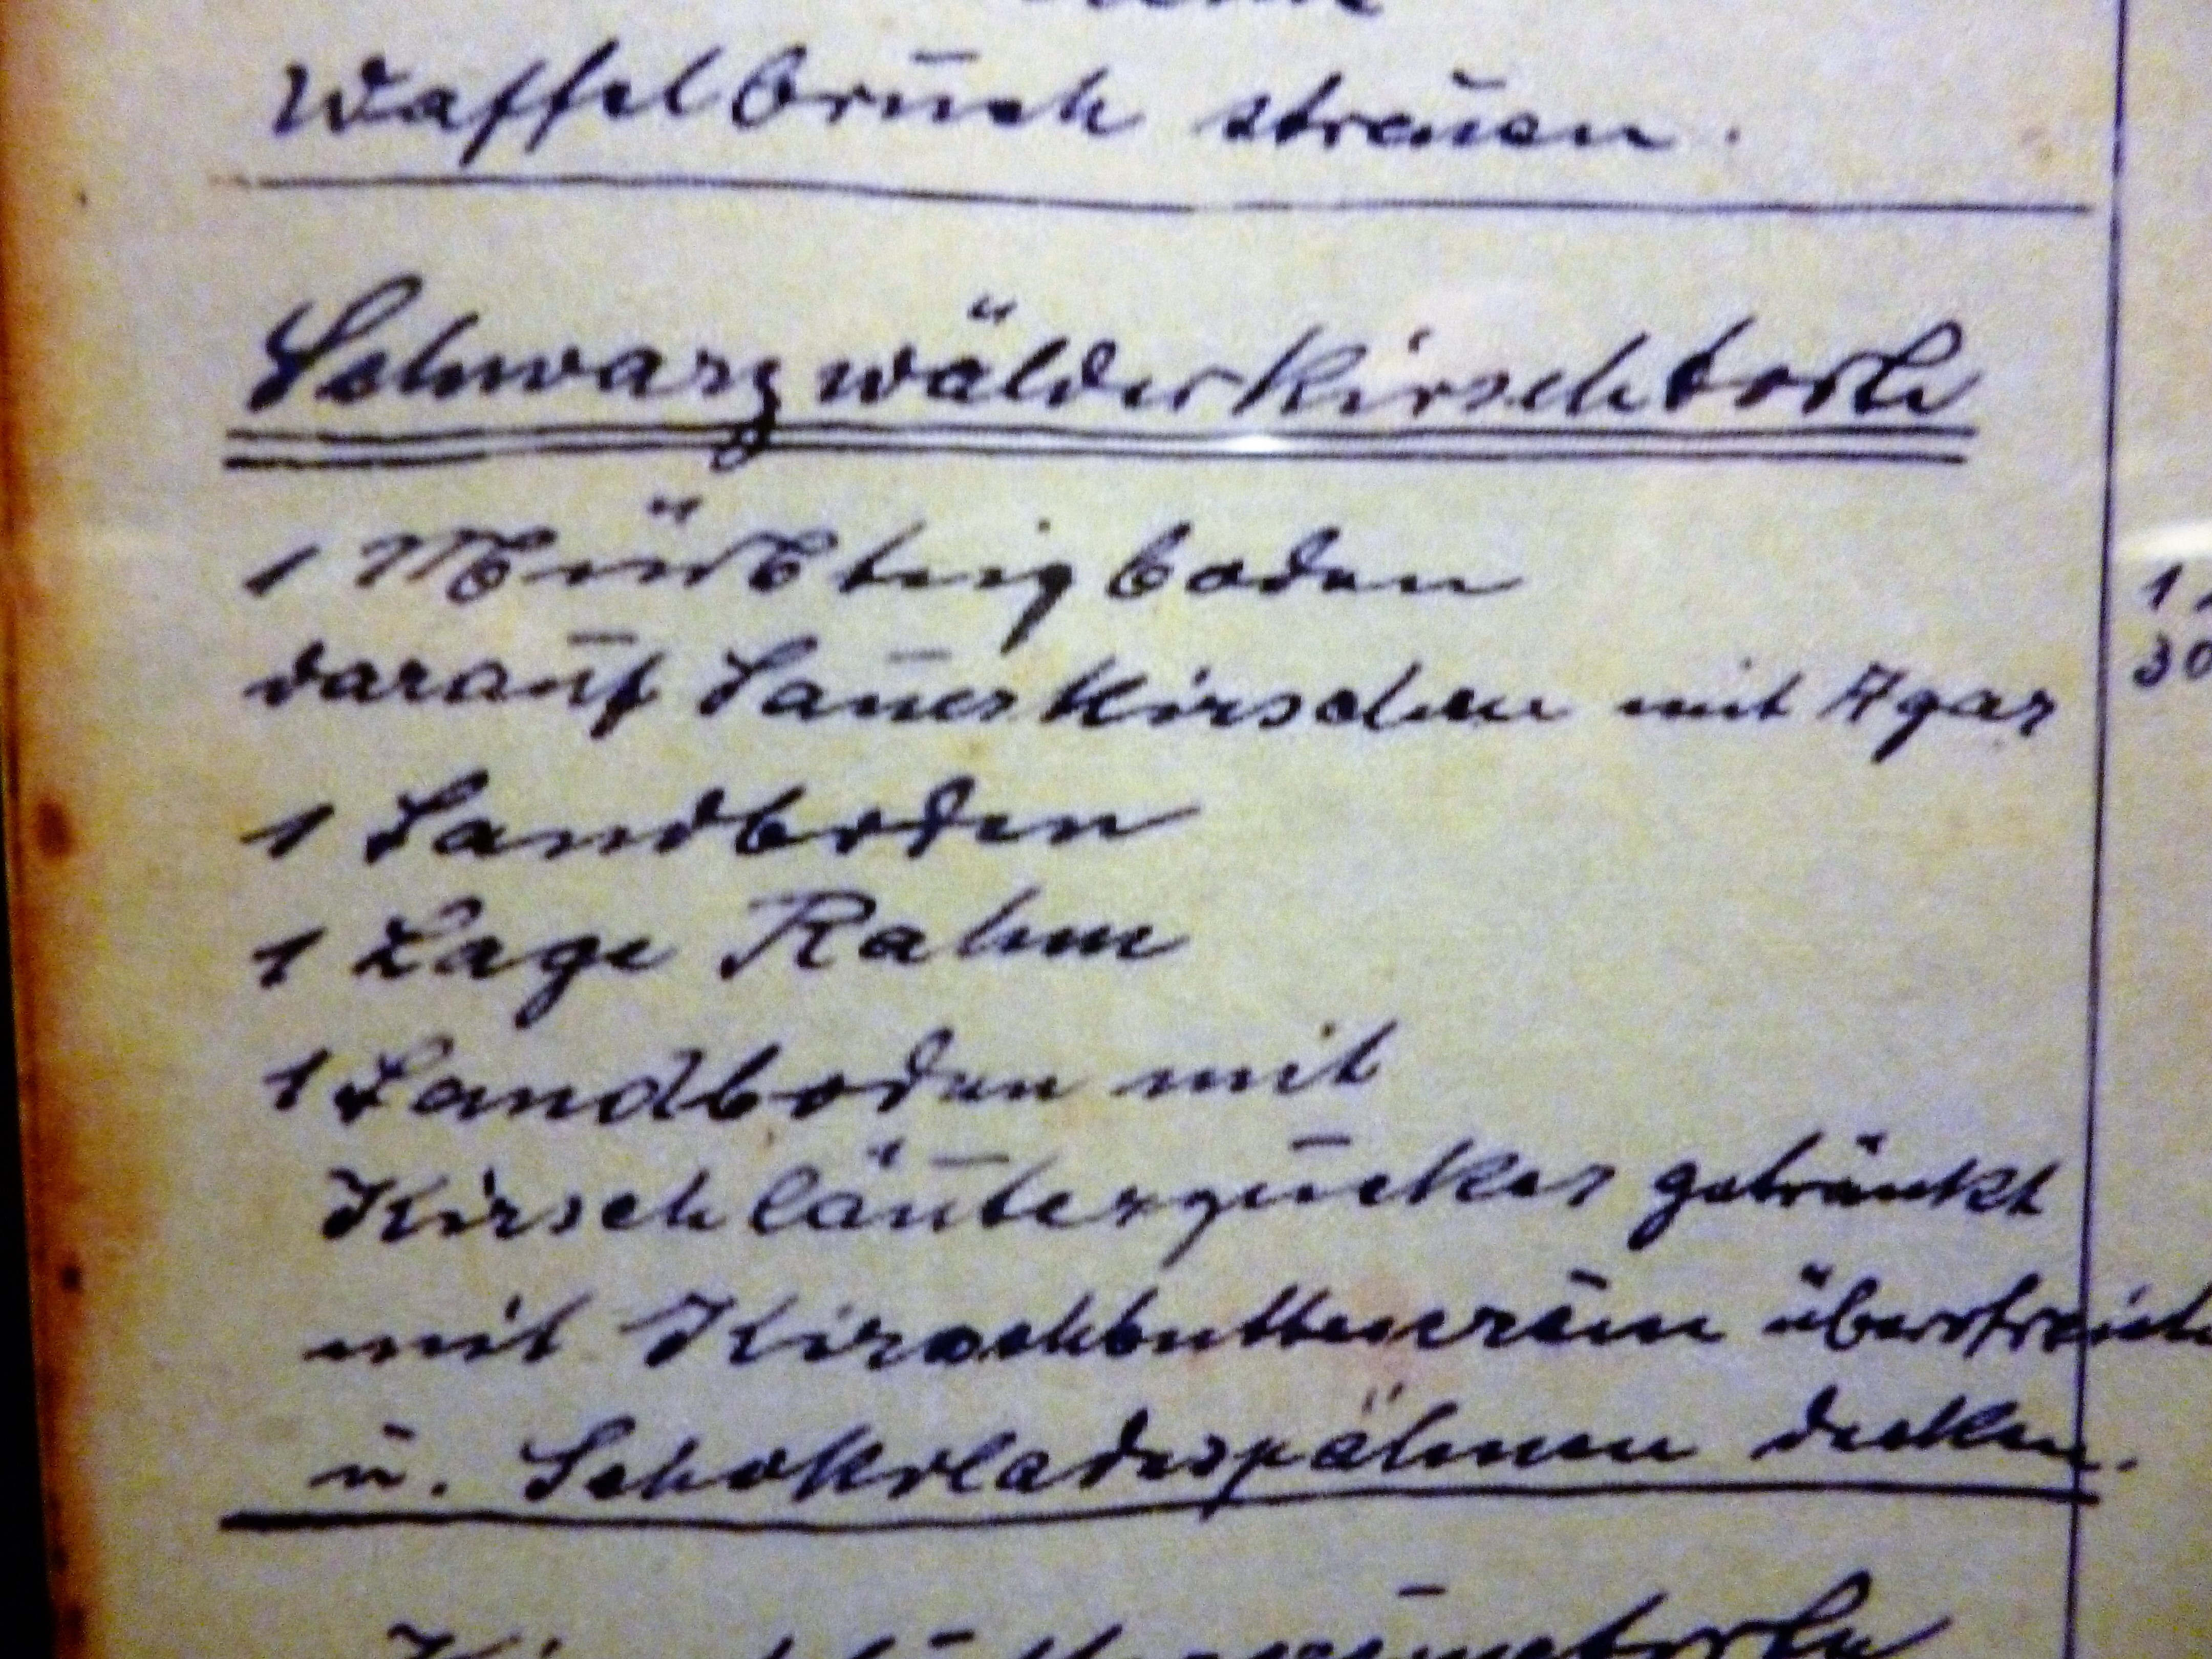 Waffelbruch streuen.
Schwarzwälderkirschtorte
1 Mürbteigboden
darauf Sauerkirschen mit Agar
1 Sandboden
1 Lage Rahm
1 Sandboden mit
Kirschläuterzucker getränkt
mit Kirschbuttercrèm überstreich
u. Schokoladespähnen decken.